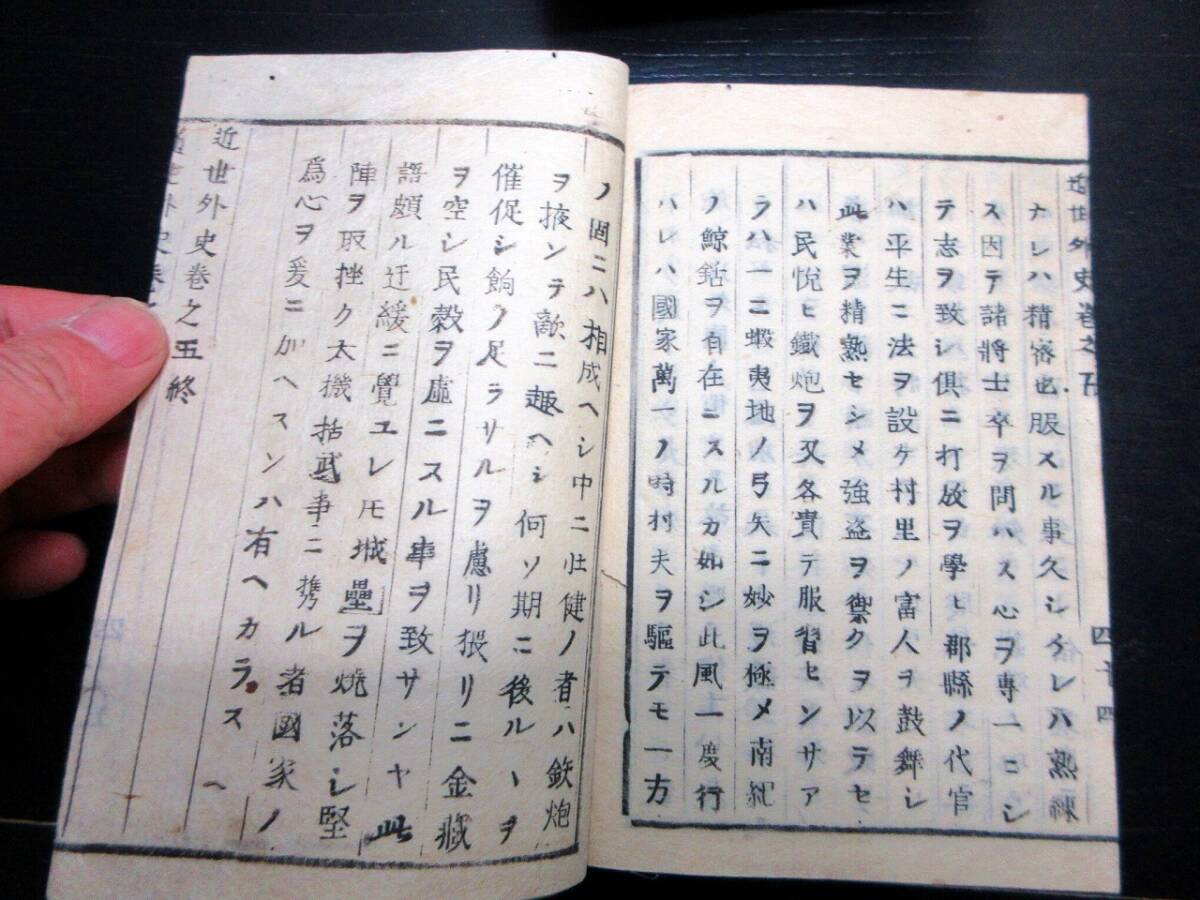 近世外史巻之五
四十四
ナレハ精審也服スル事久シケレハ熟練
ス因テ諸将士卒ヲ問ハス心ヲ專一ニシ
テ志ヲ致シ俱ニ打放ヲ學ヒ郡縣ノ代官
ハ平生ニ法ヲ設ケ村里ノ富人ヲ鼓舞シ
此業ヲ精熟セシメ強盗ヲ禦クヲ以テセ
ハ民悦ヒ鐵炮ヲ又各貴テ服習ヒンサア
ラハ一ニ蝦夷地ノ弓矢ニ妙ヲ極メ南紀
ノ鯨銛ヲ有在ニスルカ如シ此風一度行
ハレハ國家萬一ノ時村夫ヲ驅テモ一方
ノ固ニハ相成ヘシ中ニ壮健ノ者ハ欽炮
ヲ掖ンテ敵ニ趣ヘシ何ソ期ニ後ルヽヲ
催促シ餉ノ足ラサルヲ慮リ猥リニ金藏
ヲ空シ民穀ヲ虛ニスル事ヲ致サンヤ此
語頗ル迂緩ニ覺ユレ𪜈城壘ヲ焼落シ堅
陣ヲ取挫ク太機括武事ニ携ル者國家ノ
爲心ヲ爰ニ加ヘスンハ有ヘカラス
近世外史巻之五終